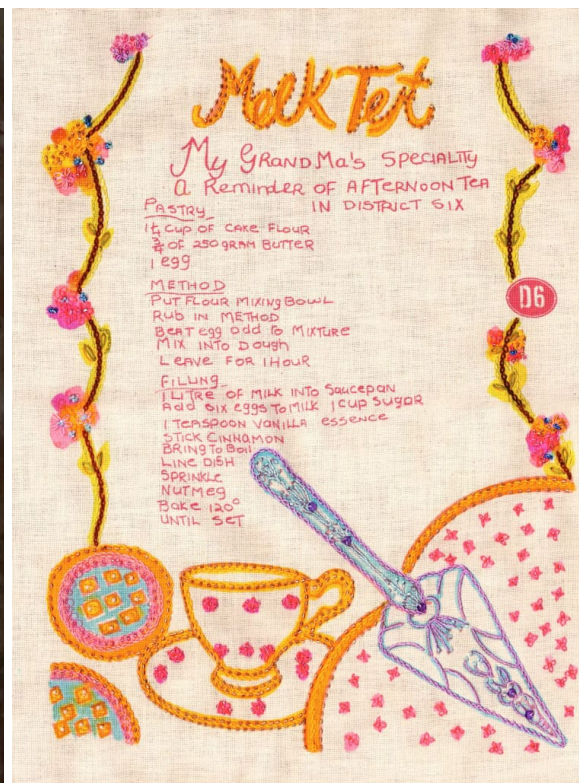 Melk Tert
My GRANDMa's SPECIALITY
a Reminder OF AFTERNOON Tea
IN DISTRICT SIX
PASTRY
1¼ Cup OF CAKE FLOUR
¾ OF 250 GRAM BUTTER
1 egg
METHOD
PUT FLOUR MIXING BOWL
RUB IN METHOD
BEAT egg add TO MIXTURE
MIX INTO DOUGH
LEAVE FOR 1 HOUR
D6
FILLING
1 LITRE OF MILK INTO SAUCEPAN
Add SIX EGGS TO MILK 1 CUP SUGAR
1 TEASPOON VANILLA essence
STICK CINNAMON
BRING TO BOIL
LINE DISH
SPRINKLE
NUTMEG
BAKE 120°
UNTIL SET